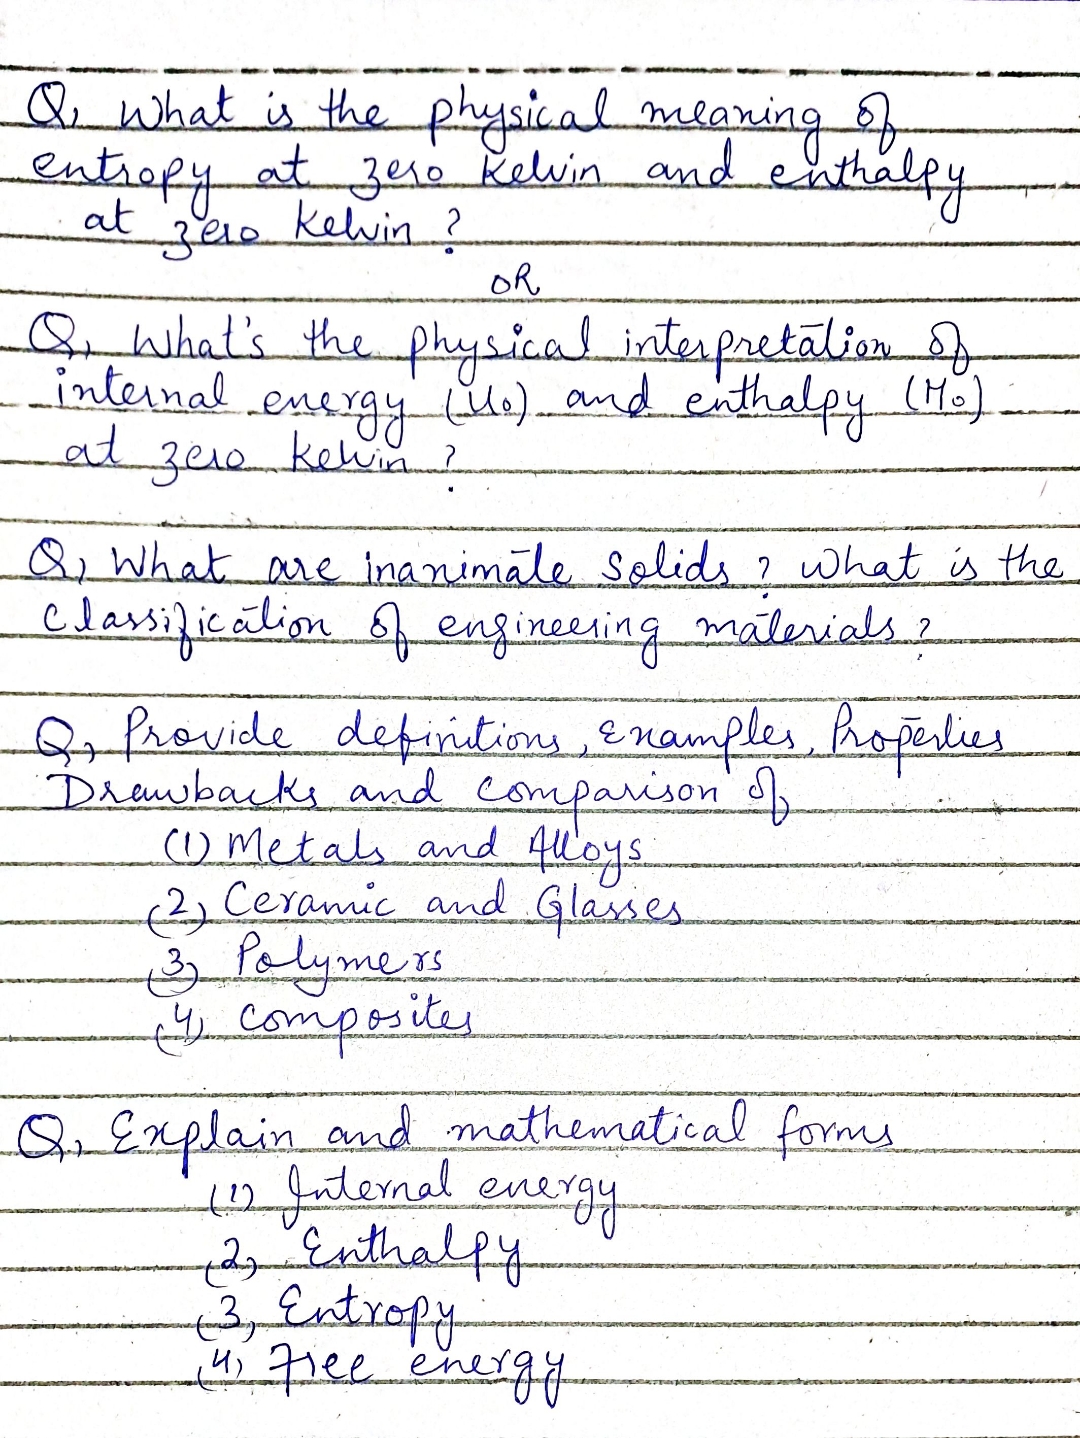 Q, What is the physical meaning of
entropy at zero Kelvin and enthalpy
at zero Kelvin ?
OR
Q, What's the physical interpretation of
internal energy (U₀) and enthalpy (H₀)
at zero Kelvin ?
Q, What are inanimate Solids ? What is the
Classification of engineering materials ?
Q, Provide definitions, Examples, Properties
Drawbacks and comparison of
(1) Metals and Alloys
(2) Ceramic and Glasses
(3) Polymers
(4) Composites
Q, Explain and mathematical forms
(1) Internal energy
(2) Enthalpy
(3) Entropy
(4) Free energy